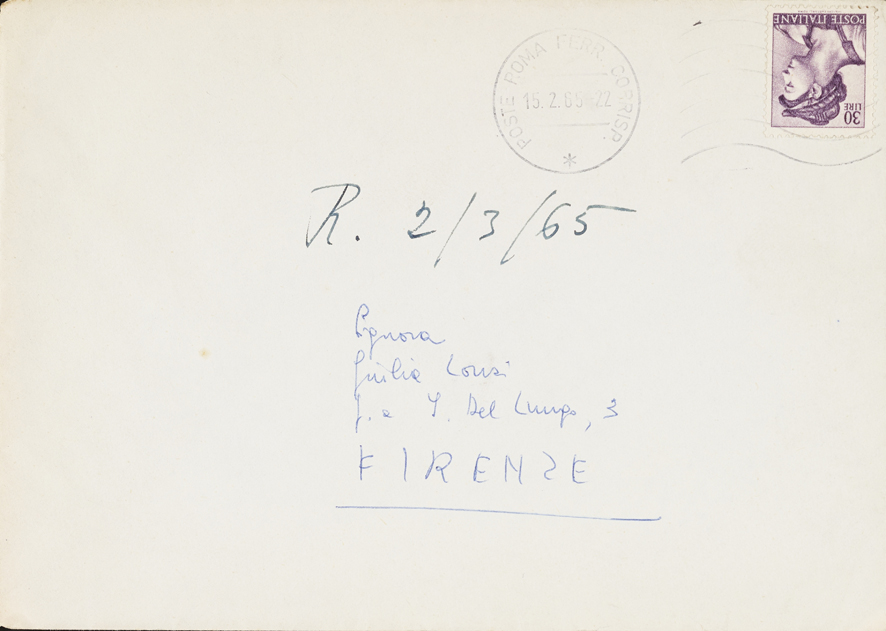 POSTE ITALIANE
30 LIRE
POSTE ROMA FERR. CORRISP.
15.2.65-22
R. 2/3/65
Signora
Giulia Lonzi
I. Del Lungo, 3
FIRENZE